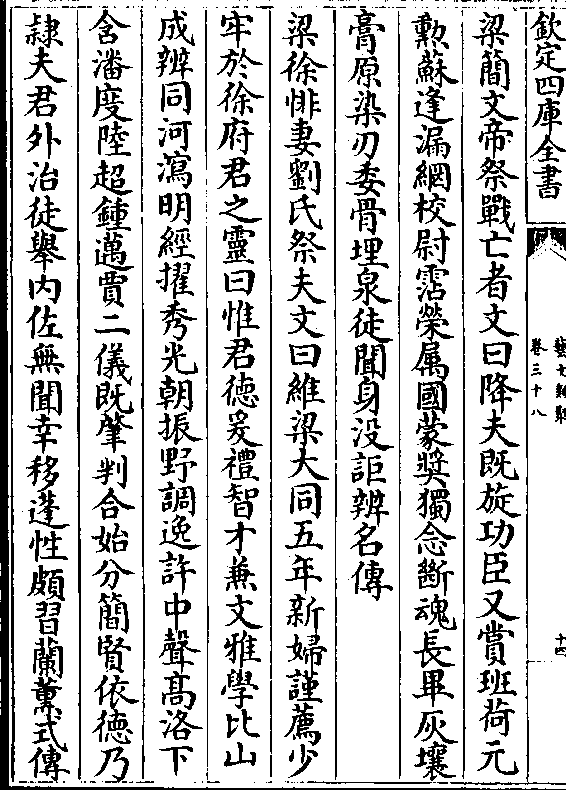 欽定四庫全書
藝文類聚
卷三十八
十四
梁簡文帝祭戰亡者文曰降夫既旋功臣又賞班荷元
勲蘇逢漏網校尉霑榮属國蒙奬獨念斷魂長畢灰壤
膏原染刃委骨埋泉徒聞身没詎辨名傳
梁徐悱妻劉氏祭夫文曰維梁大同五年新婦謹薦少
牢於徐府君之靈曰惟君徳爰禮智才兼文雅學比山
成辨同河瀉明經擢秀光朝振野調逸許中聲髙洛下
含潘度陸超鍾邁賈二儀既肇判合始分簡賢依徳乃
隷夫君外治徒舉内佐無聞幸移蓬性頗習蘭薫式傳